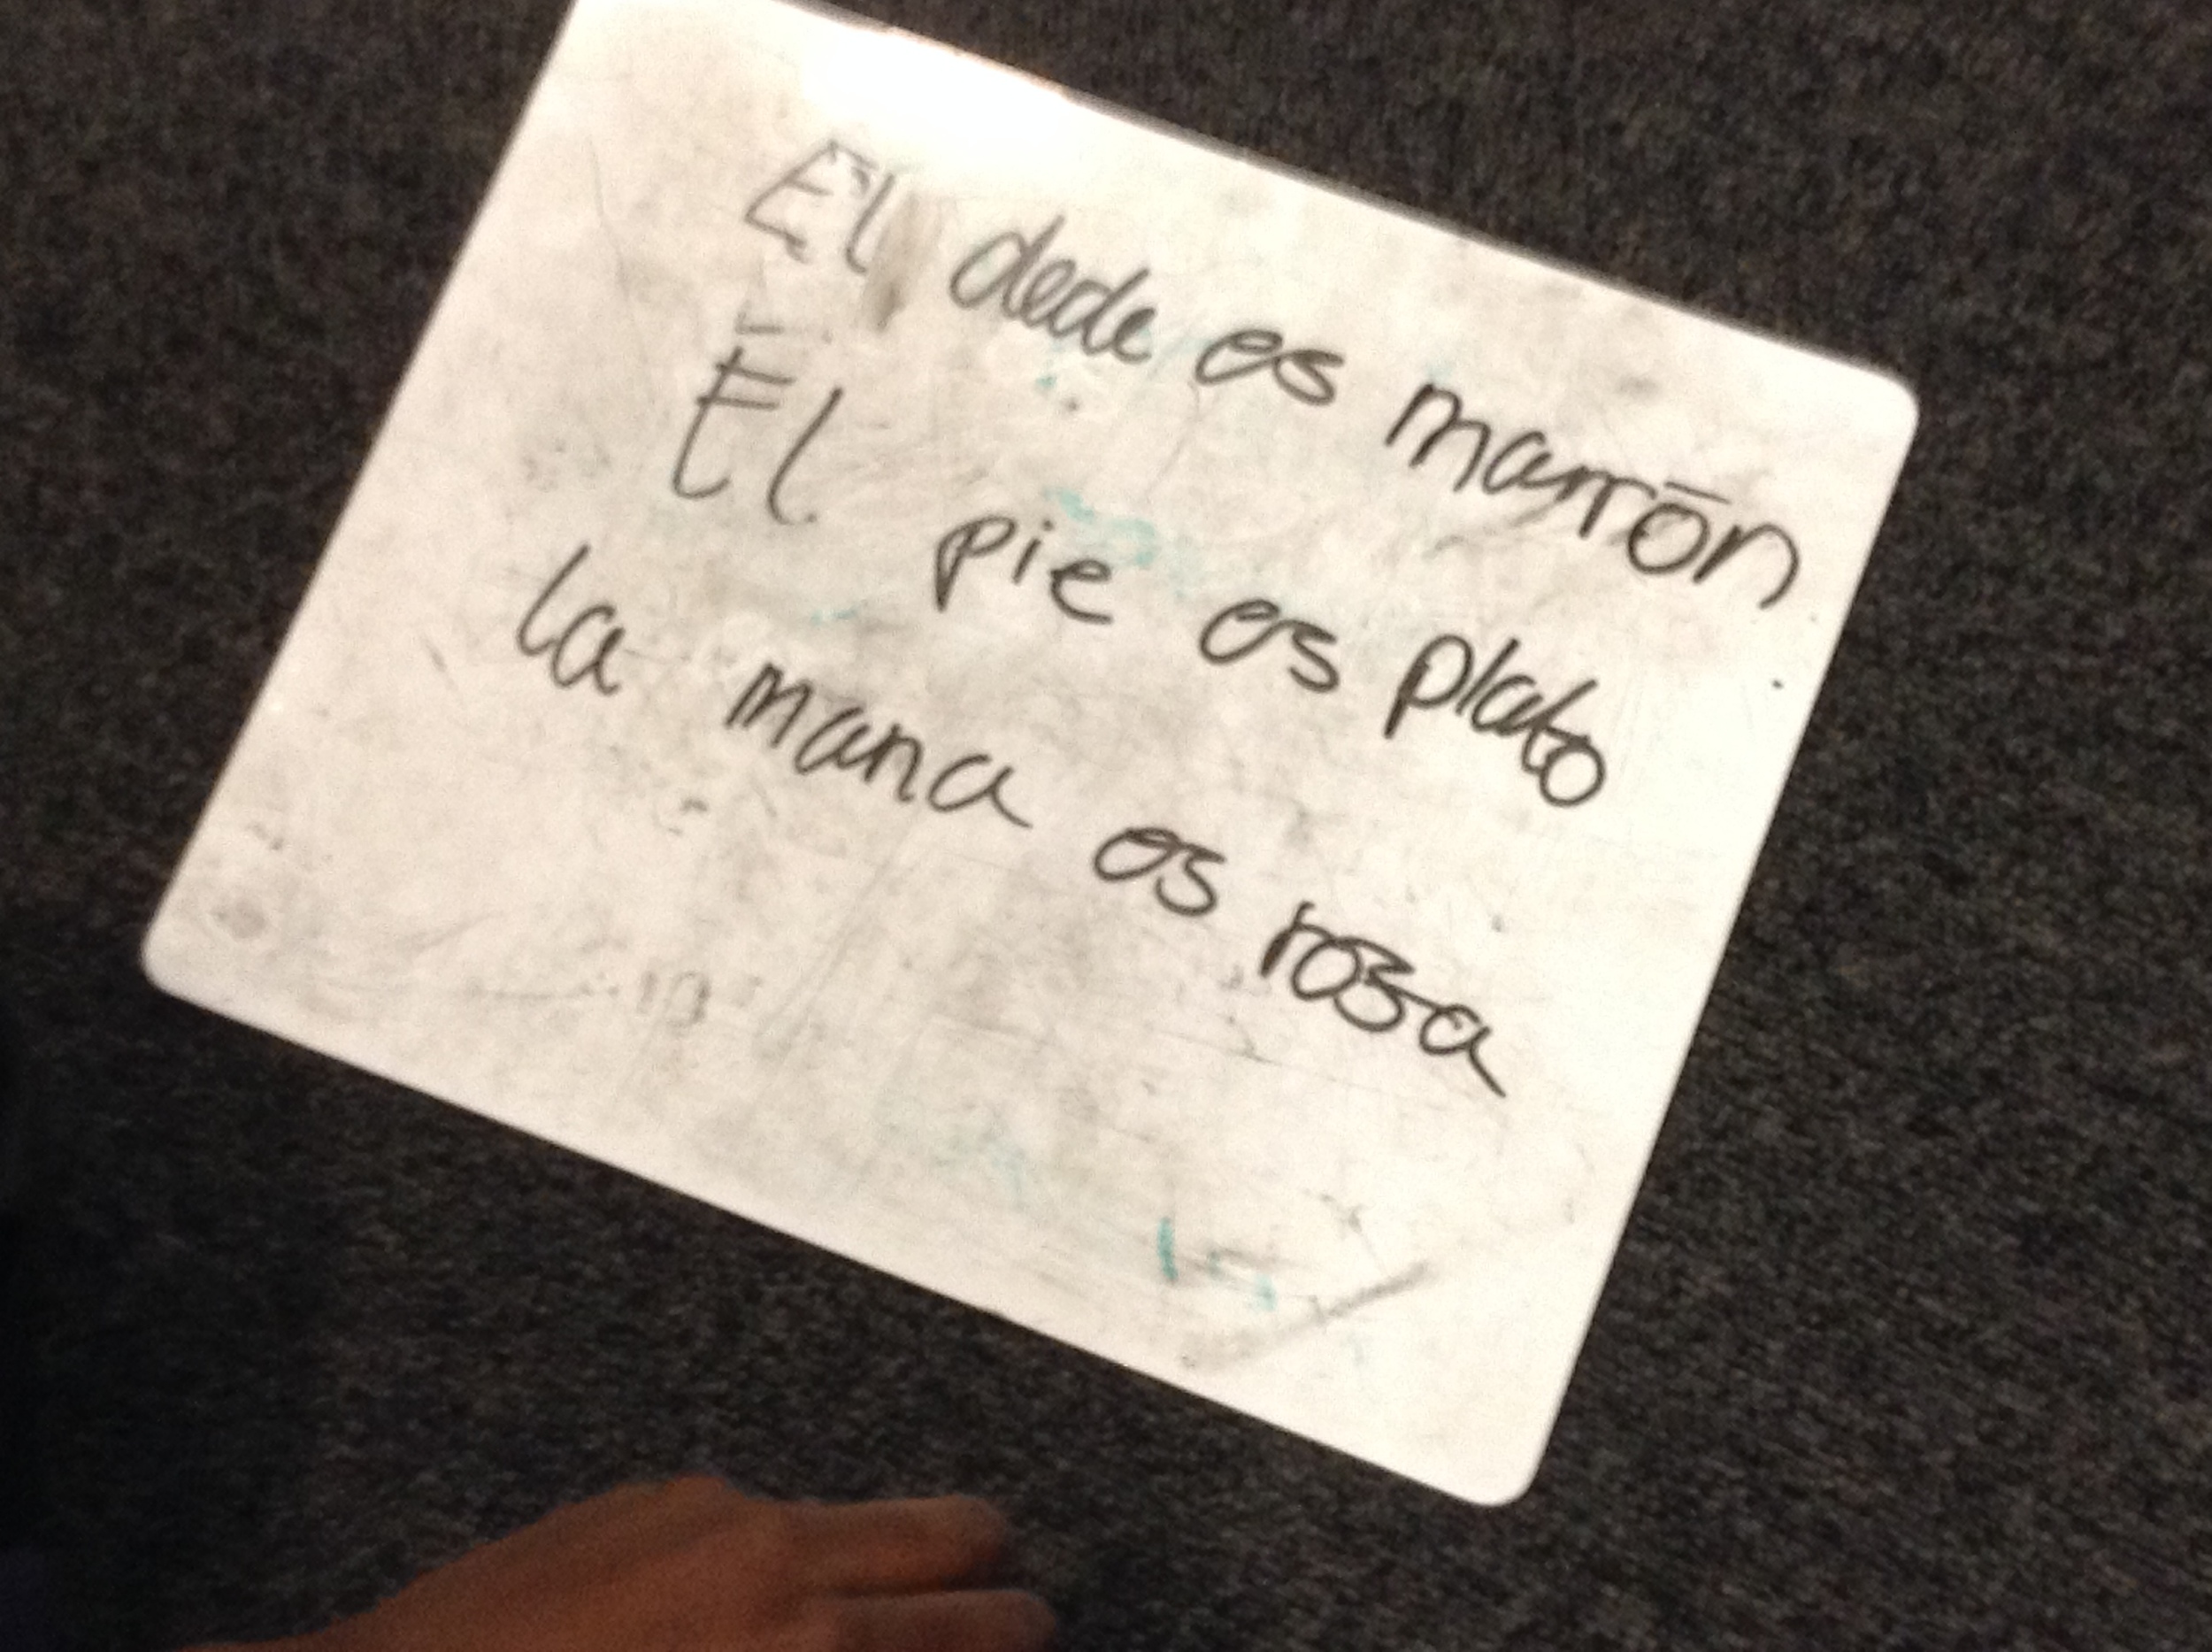 El dede es marrōn
Ēl pie es plato
la mana es rosa